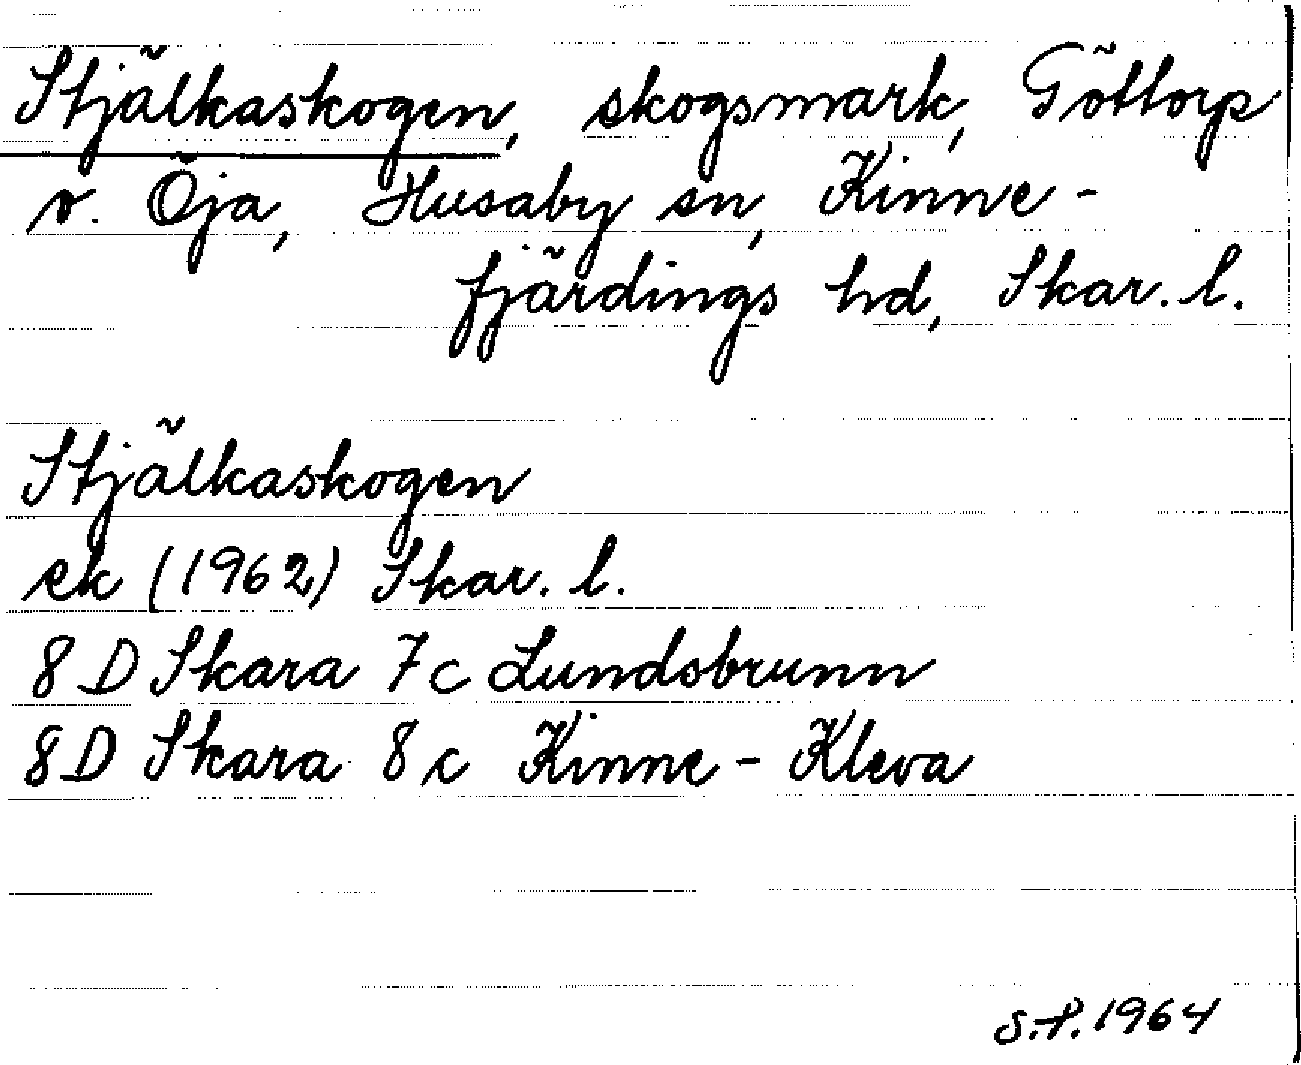 Stjälkaskogen, skogsmark, Töttorp
v. Öja, Husaby sn, Kinne-
fjärdings hd, Skar. l.
Stjälkaskogen
ek (1962) Skar. l.
8 D Skara 7 c Lundsbrunn
8 D Skara 8 c Kinne-Kleva
S.P. 1964